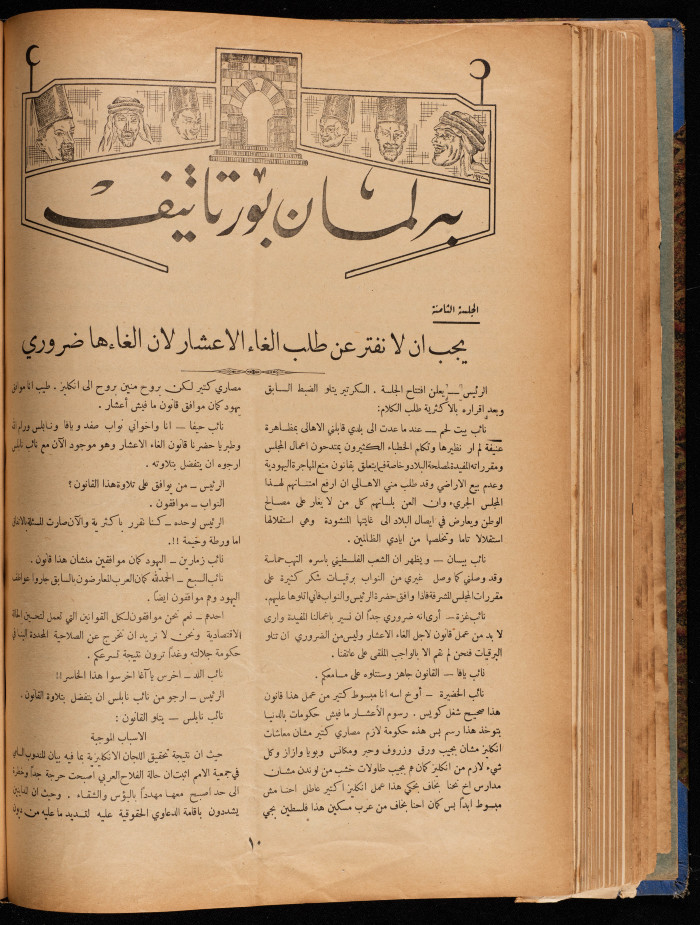 برلمان بورتاتيف
الجلسة الثامنة
يجب ان لا نفتر عن طلب الغاء الاعشار لان الغاءها ضروري
الرئيس — يعلن افتتاح الجلسة . السكرتير يتلو الضبط السابق
وبعد اقراره بالأكثرية طلب الكلام :
نائب بيت لحم — عند ما عدت الى بلدي قابلني الاهالى بمظاهرة
عنيفة لم ار نظيرها وتكلم الخطباء الكثيرون يمتدحون اعمال المجلس
ومقرراته المفيدة لمصلحة البلاد وخاصة فيما يتعلق بقانون منع المهاجرة اليهودية
وعدم بيع الاراضي وقد طلب مني الاهالي ان ارفع امتنانهم لهذا
المجلس الجريء وان العن بلسانهم كل من لا يغار على مصالح
الوطن ويعارض في ايصال البلاد الى غايتها المنشودة وهي استقلالها
استقلالا تاما وتخلصها من ايادي الظالمين .
نائب بيسان — ويظهر ان الشعب الفلسطيني باسره التهب حماسة
وقد وصلني كما وصل غيري من النواب برقيات شكر كثيرة على
مقررات المجلس المشرفة فاذا وافق حضرة الرئيس والنواب فأني اتلوها عليهم .
نائب غزة — أرى انه ضروري جداً ان نسير باعمالنا المفيدة وارى
لا بد من عمل قانون لاجل الغاء الاعشار وليس من الضروري ان نتلو
البرقيات فنحن لم نقم الا بالواجب الملقى على عاتقنا .
نائب يافا — القانون جاهز وسنتلوه على مسامعكم .
نائب الخضيرة — أوخ اسه انا مبسوط كتير من عمل هذا قانون
هذا صحيح شغل كويس . رسوم الأعشار ما فيش حكومات بالدنيا
يتوخد هذا رسم بس هذه حكومة لازم مصاري كتير مشان معاشات
انكليز مشان يجيب ورق وزروف وحبر ومكانس وبويا وازاز وكل
شيء لازم من انكليز كمان م يجيب طاولات خشب من لوندن مشان
مدارس اخ نحنا بخاف يحكي هذا عمل انكليز اكتير عاطل احنا مش
مبسوط ابداً بس كمان احنا بخاف من عرب مسكين هذا فلسطين يجي
مصاري كتير لكن بروح منين بروح الى انكليز . طيب انا موافق
يهود كمان موافق قانون ما فيش أعشار .
نائب حيفا — انا واخواني نواب صفد ويافا ونابلس ورام الله
وطبريا حضرنا قانون الغاء الاعشار وهو موجود الآن مع نائب نابلس
ارجوه ان يتفضل بتلاوته .
الرئيس — من يوافق على تلاوة هذا القانون ؟
النواب — موافقون .
الرئيس لوحده — كنا نقرر باكثرية والآن صارت المسئلة بالاتفاق
اما ورطة وخيمة !! .
نائب زمارين — اليهود كمان موافقين منشان هذا قانون .
نائب السبع — الحمدلله كمان العرب المعارضون بالسابق جاروا عواطف
اليهود وهم موافقون ايضاً .
احدهم — نعم نحن موافقون لكل القوانين التي تعمل لتحسين الحالة
الاقتصادية ونحن لا نريد ان نخرج عن الصلاحية المحددة الينا في
حكومة جلالته وغداً ترون نتيجة تسرعكم .
نائب اللد — اخرس يا آغا اخرسوا هذا الخاسر !!
الرئيس — ارجو من نائب نابلس ان يتفضل بتلاوة القانون .
نائب نابلس — يتلو القانون :
الاسباب الموجبة
حيث ان نتيجة تحقيق اللجان الانكليزية بما فيه بيان المندوب السامي
في جمعية الامم اثبت ان حالة الفلاح العربي اصبحت حرجة جداً وخطرة
الى حد اصبح معها مهدداً بالبؤس والشقاء . وحيث ان الدائنين
يشددون باقامة الدعاوي الحقوقية عليه لتسديد ما عليه من ديون
١٠